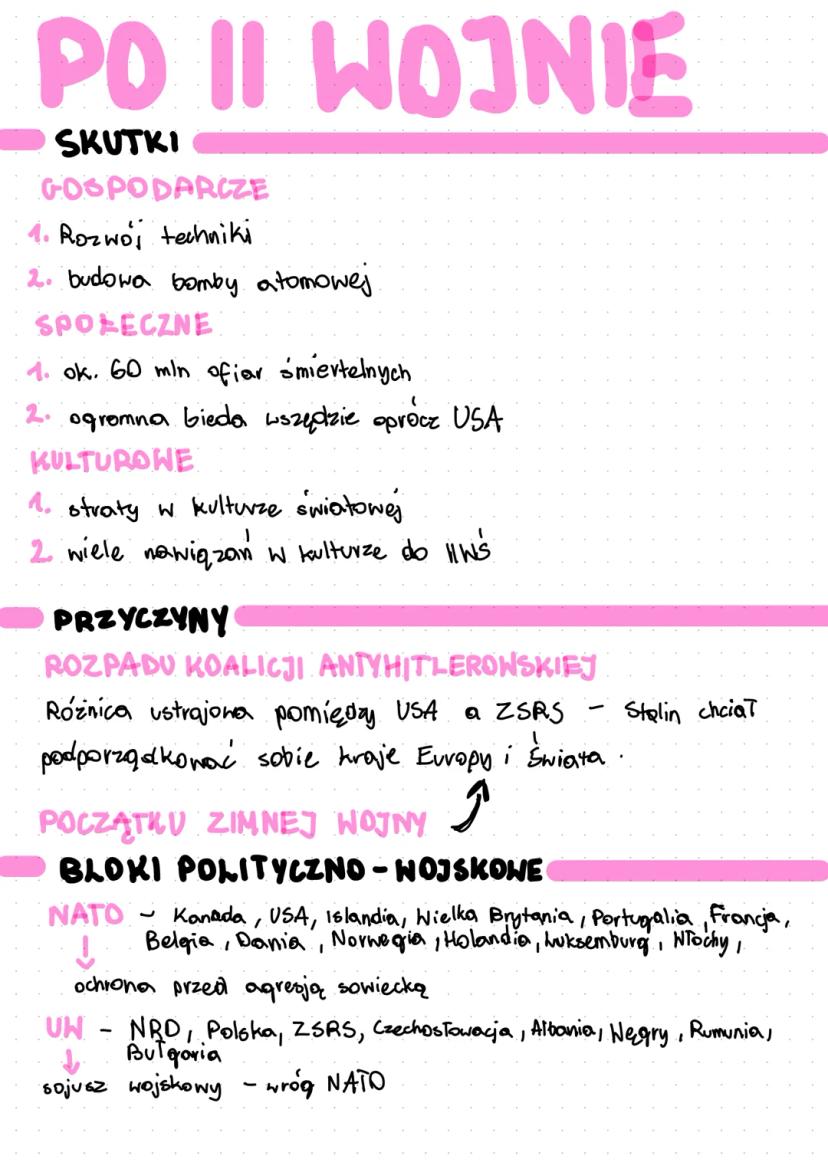 PO II WOJNIE
SKUTKI
GOSPODARCZE
1. Rozwój techniki
2. budowa bomby atomowej
SPOŁECZNE
1. ok. 60 mln ofiar śmiertelnych
2. ogromna bieda wszędzie oprócz USA
KULTUROWE
1. straty w kulturze światowej
2. wiele nawiązań w kulturze do IIWŚ
PRZYCZYNY
ROZPADU KOALICJI ANTYHITLEROWSKIEJ
Różnica ustrojowa pomiędzy USA a ZSRS – Stalin chciał
podporządkować sobie kraje Europy i Świata.
POCZĄTKU ZIMNEJ WOJNY
BLOKI POLITYCZNO-WOJSKOWE
NATO – Kanada, USA, Islandia, Wielka Brytania, Portugalia, Francja,
Belgia, Dania, Norwegia, Holandia, Luksemburg, Włochy,
↓
ochrona przed agresją sowiecką
UW – NRD, Polska, ZSRS, Czechosłowacja, Albania, Węgry, Rumunia,
Bułgaria
↓
sojusz wojskowy – wróg NATO